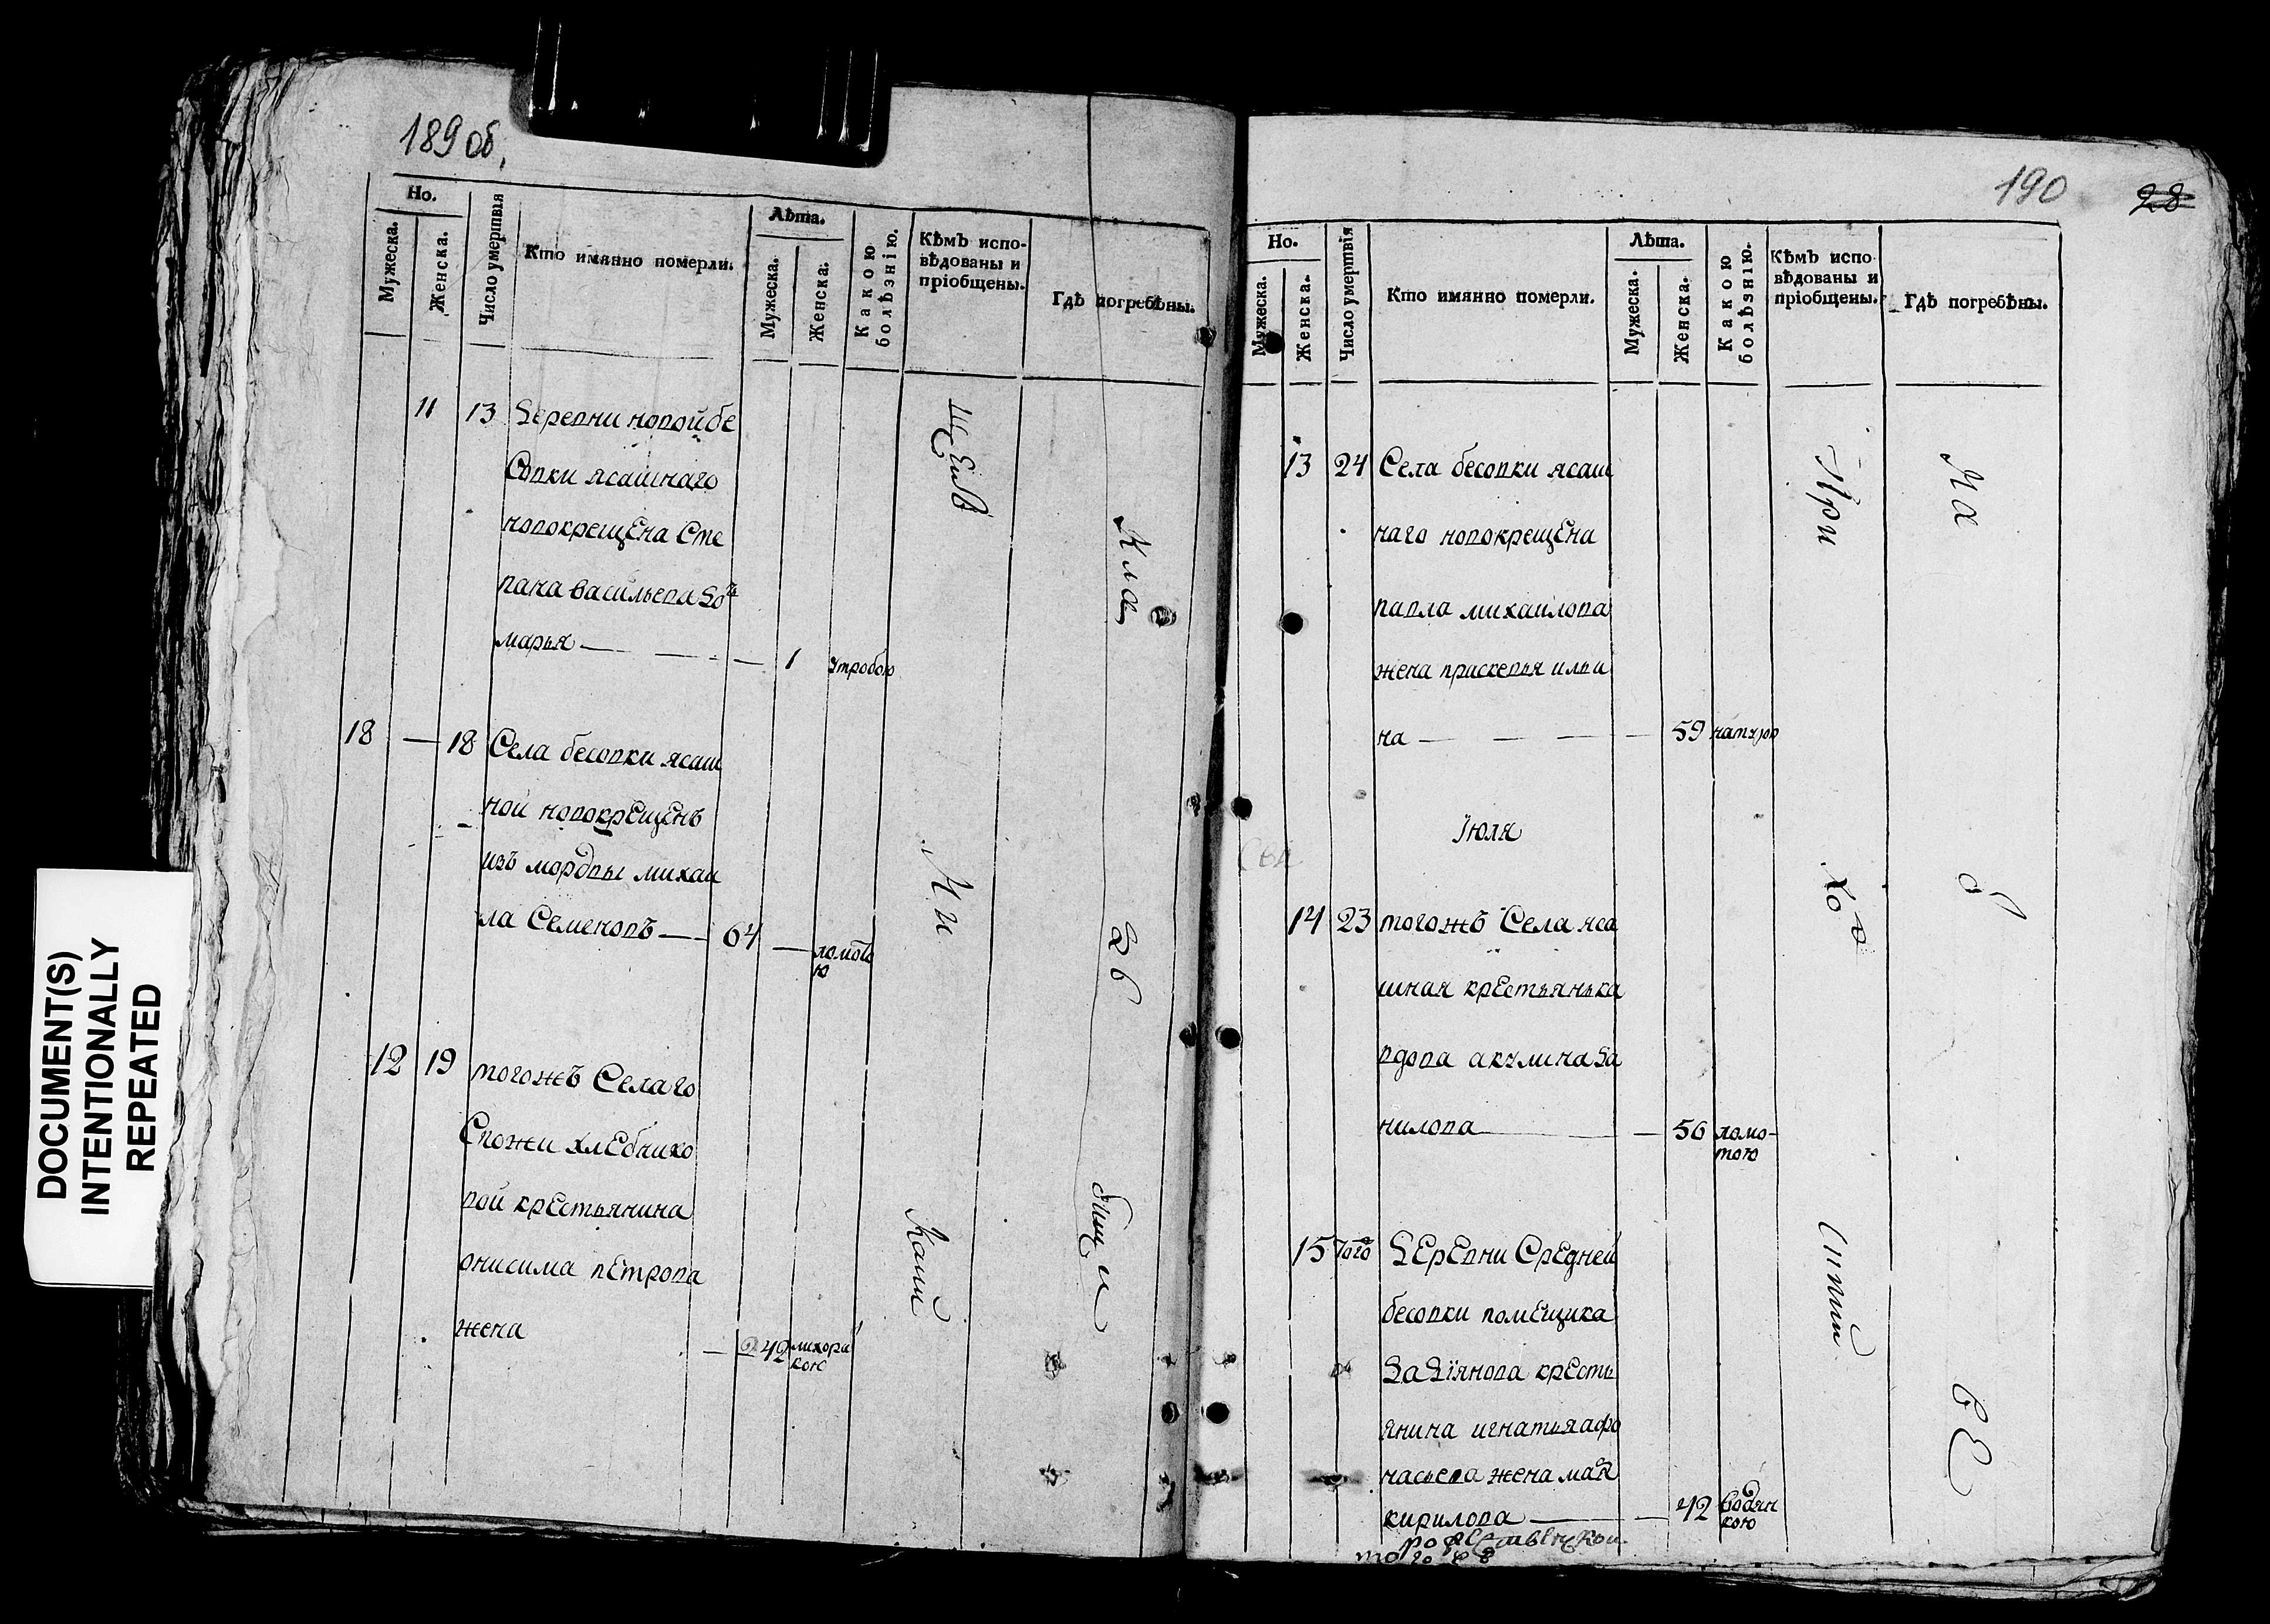 189 об.
Но.
Мужеска.
Женска.
Число умертвія
Кто имянно померли.
Лѣта.
Мужеска.
Женска.
Какою болѣзнію.
Кѣмъ испо-
вѣдованы и
пріобщены.
Гдѣ погребѣны.
11 13 Деревни новой бе
совки ясашнаго
новокрещена Сте
пана васильева дочь
марья — 1 утробою
18 — 18 Села бесовки ясаш
ной новокрещенъ
изъ мордвы михаи
ла Семеновъ — 64 — ломото
ю
12 19 тогожъ Села го
спожи хлебнико
вой крестьянина
онисима петрова
жена — 42 лихора
кою
Кла
дб
бищи
190
28
Но.
Мужеска.
Женска.
Число умертвія
Кто имянно померли.
Лѣта.
Мужеска.
Женска.
Какою болѣзнію.
Кѣмъ испо-
вѣдованы и
пріобщены.
Гдѣ погребѣны.
13 24 Села бесовки ясаш
наго новокрещена
павла михаилова
жена прасковья ильи
на — 59 натурою
Іюля
14 23 тогожъ Села яса
шная крестьянька
вдова акулина да
нилова — 56 ломо-
тою
15 того Деревни Средней
бесовки помещика
крестьь
янина игнатья афо
насьева жена
кирилова — 42 водян
кою
При
хо
д